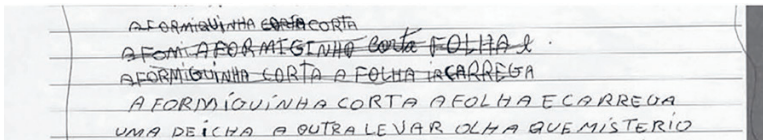 AFORMIQUINHA CORTA CORTA
AFOMI AFORMIGINHO corta FOLHA e.
AFORMIGUINHA CORTA A FOLHA IRCARREGA
AFORMIGUINHA CORTA AFOLHA ECARREGA
UMA DEICHA A OUTRA LEVAR OLHA QUE MISTERIO